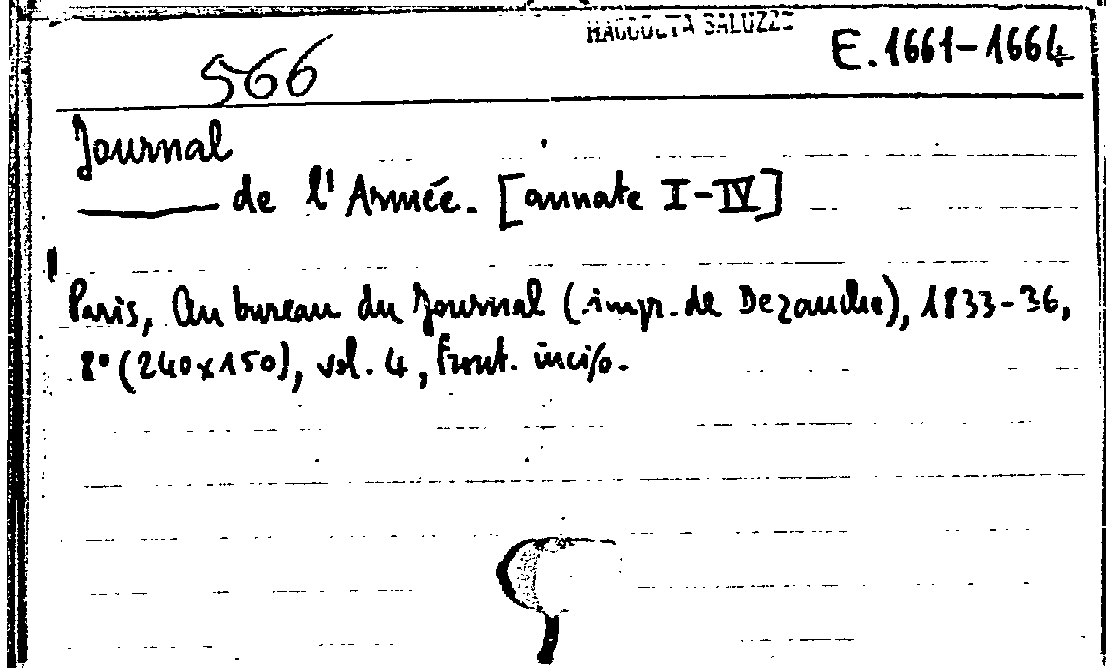 RACCOLTA SALUZZO
566 E.1661-1664
Journal
de l'Armée. [annate I-IV]
Paris, Au bureau du Journal (impr. de Dezauche), 1833-36,
8° (240x150), vol. 4, front. incis.